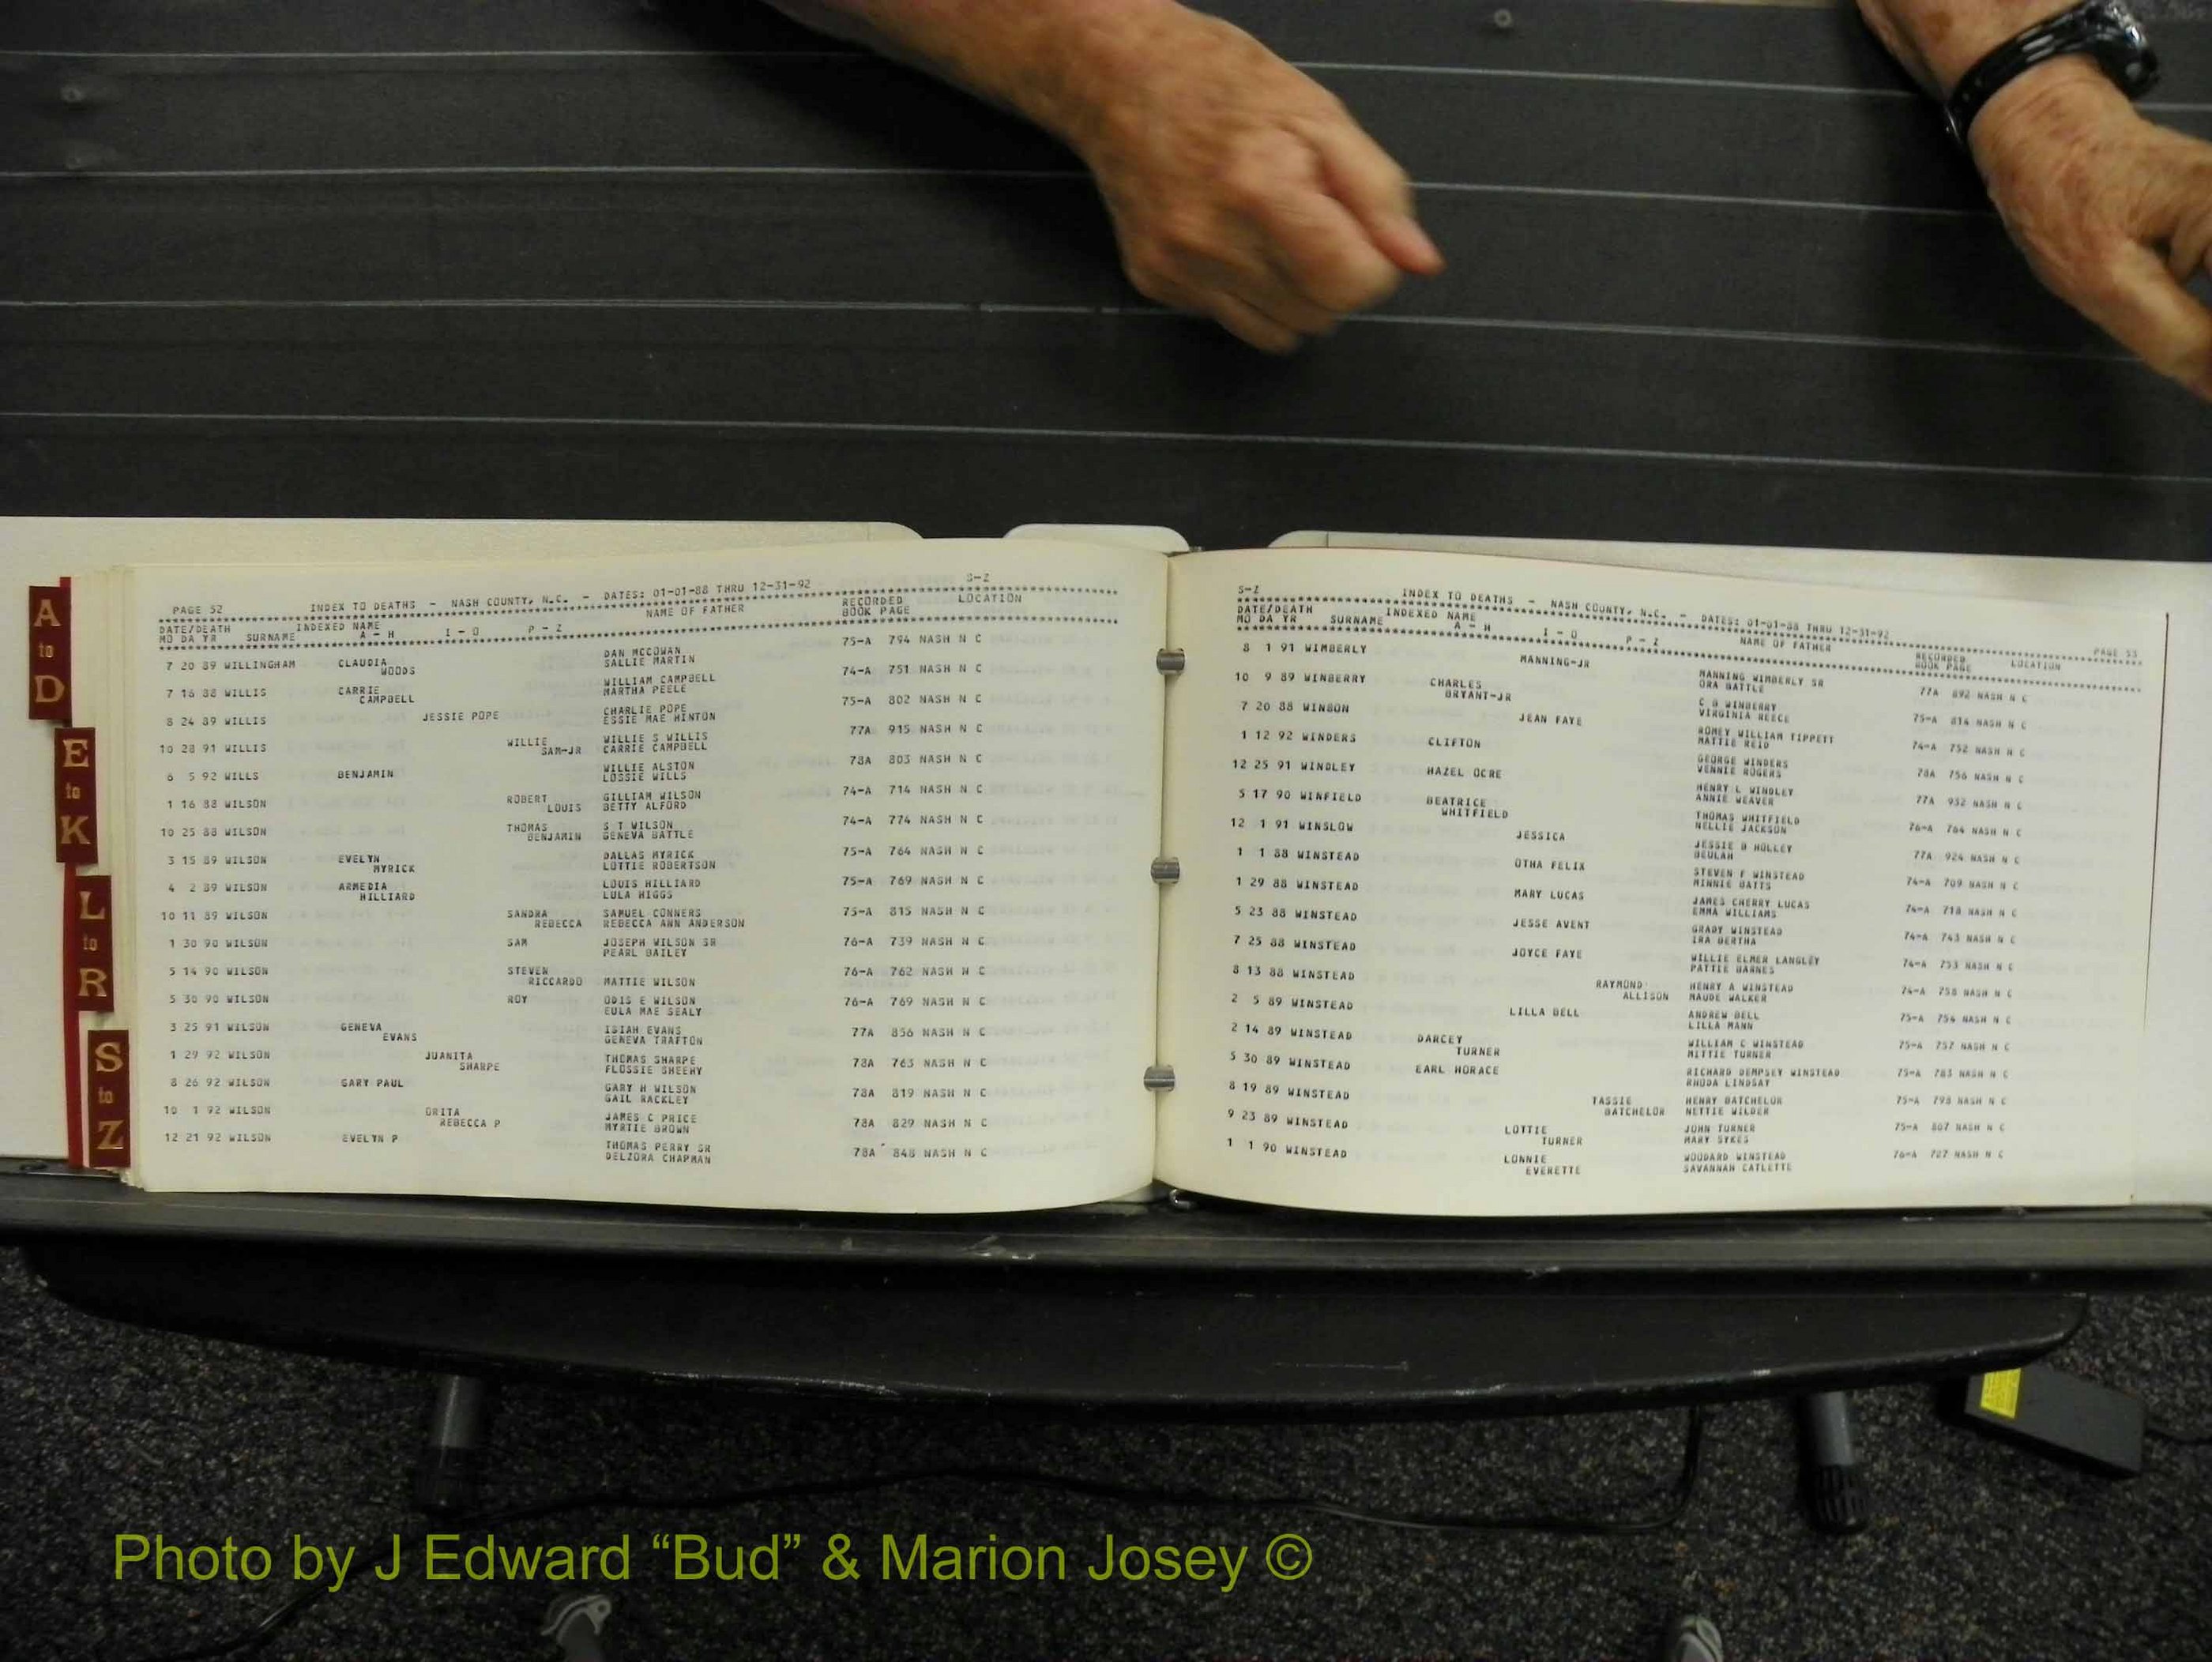 A
to
D
E
to
K
L
to
R
S
to
Z
PAGE 52 INDEX TO DEATHS - NASH COUNTY, N.C. - DATES: 01-01-88 THRU 12-31-92 S-Z
DATE/DEATH INDEXED NAME NAME OF FATHER RECORDED LOCATION
MO DA YR SURNAME A - H I - O P - Z BOOK PAGE
7 20 89 WILLINGHAM CLAUDIA DAN MCCOWAN 75-A 794 NASH N C
WOODS SALLIE MARTIN
7 16 88 WILLIS CARRIE WILLIAM CAMPBELL 74-A 751 NASH N C
CAMPBELL MARTHA PEELE
8 24 89 WILLIS JESSIE POPE CHARLIE POPE 75-A 802 NASH N C
ESSIE MAE HINTON
10 28 91 WILLIS WILLIE WILLIE S WILLIS 77A 915 NASH N C
SAM-JR CARRIE CAMPBELL
6 5 92 WILLS BENJAMIN WILLIE ALSTON 78A 803 NASH N C
LOSSIE WILLS
1 16 88 WILSON ROBERT GILLIAM WILSON 74-A 714 NASH N C
LOUIS BETTY ALFORD
10 25 88 WILSON THOMAS S T WILSON 74-A 774 NASH N C
BENJAMIN GENEVA BATTLE
3 15 89 WILSON EVELYN DALLAS MYRICK 75-A 764 NASH N C
MYRICK LOTTIE ROBERTSON
4 2 89 WILSON ARMEDIA LOUIS HILLIARD 75-A 769 NASH N C
HILLIARD LULA HIGGS
10 11 89 WILSON SANDRA SAMUEL CONNERS 75-A 815 NASH N C
REBECCA REBECCA ANN ANDERSON
1 30 90 WILSON SAM JOSEPH WILSON SR 76-A 739 NASH N C
PEARL BAILEY
5 14 90 WILSON STEVEN 76-A 762 NASH N C
RICCARDO MATTIE WILSON
5 30 90 WILSON ROY ODIS E WILSON 76-A 769 NASH N C
EULA MAE SEALY
3 25 91 WILSON GENEVA ISIAH EVANS 77A 856 NASH N C
EVANS GENEVA TRAFTON
1 29 92 WILSON JUANITA THOMAS SHARPE 78A 763 NASH N C
SHARPE FLOSSIE SHEEHY
8 26 92 WILSON GARY PAUL GARY H WILSON 78A 819 NASH N C
GAIL RACKLEY
10 1 92 WILSON ORITA JAMES C PRICE 78A 829 NASH N C
REBECCA P MYRTIE BROWN
12 21 92 WILSON EVELYN P THOMAS PERRY SR 78A 848 NASH N C
DELZORA CHAPMAN
S-Z INDEX TO DEATHS - NASH COUNTY, N.C. - DATES: 01-01-88 THRU 12-31-92 PAGE 53
DATE/DEATH INDEXED NAME NAME OF FATHER RECORDED LOCATION
MO DA YR SURNAME A - H I - O P - Z BOOK PAGE
8 1 91 WIMBERLY MANNING-JR MANNING WIMBERLY SR 77A 892 NASH N C
ORA BATTLE
10 9 89 WINBERRY CHARLES C B WINBERRY 75-A 814 NASH N C
BRYANT-JR VIRGINIA REECE
7 20 88 WINBON JEAN FAYE ROMEY WILLIAM TIPPETT 74-A 752 NASH N C
MATTIE REID
1 12 92 WINDERS CLIFTON GEORGE WINDERS 78A 756 NASH N C
VENNIE ROGERS
12 25 91 WINDLEY HAZEL OCRE HENRY L WINDLEY 77A 932 NASH N C
ANNIE WEAVER
5 17 90 WINFIELD BEATRICE THOMAS WHITFIELD 76-A 764 NASH N C
WHITFIELD NELLIE JACKSON
12 1 91 WINSLOW JESSICA JESSIE B HOLLEY 77A 924 NASH N C
BEULAH
1 1 88 WINSTEAD OTHA FELIX STEVEN F WINSTEAD 74-A 709 NASH N C
MINNIE BATTS
1 29 88 WINSTEAD MARY LUCAS JAMES CHERRY LUCAS 74-A 718 NASH N C
EMMA WILLIAMS
5 23 88 WINSTEAD JESSE AVENT GRADY WINSTEAD 74-A 743 NASH N C
IRA BERTHA
7 25 88 WINSTEAD JOYCE FAYE WILLIE ELMER LANGLEY 74-A 753 NASH N C
PATTIE BARNES
8 13 88 WINSTEAD RAYMOND HENRY A WINSTEAD 74-A 758 NASH N C
ALLISON MAUDE WALKER
2 5 89 WINSTEAD LILLA BELL ANDREW BELL 75-A 754 NASH N C
LILLA MANN
2 14 89 WINSTEAD DARCEY WILLIAM C WINSTEAD 75-A 757 NASH N C
TURNER MITTIE TURNER
5 30 89 WINSTEAD EARL HORACE RICHARD DEMPSEY WINSTEAD 75-A 783 NASH N C
RHODA LINDSAY
8 19 89 WINSTEAD TASSIE HENRY BATCHELOR 75-A 798 NASH N C
BATCHELOR NETTIE WILDER
9 23 89 WINSTEAD LOTTIE JOHN TURNER 75-A 807 NASH N C
TURNER MARY SYKES
1 1 90 WINSTEAD LONNIE WOODARD WINSTEAD 76-A 727 NASH N C
EVERETTE SAVANNAH CATLETTE
Photo by J Edward “Bud” & Marion Josey ©